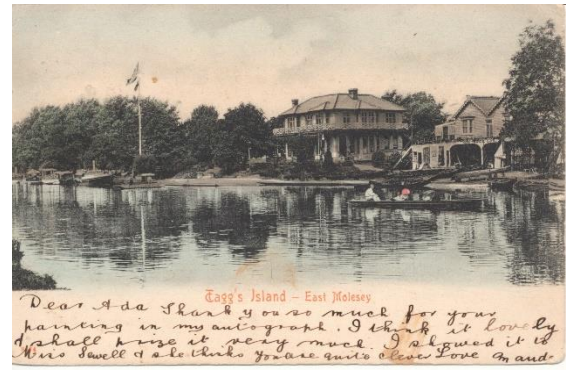 Tagg's Island – East Molesey
Dear Ada Thank you so much for your
painting in my autograph. I think it lovely
& shall prize it very much. I showed it to
Miss Sewell & she thinks you are quite clever Love Maud-